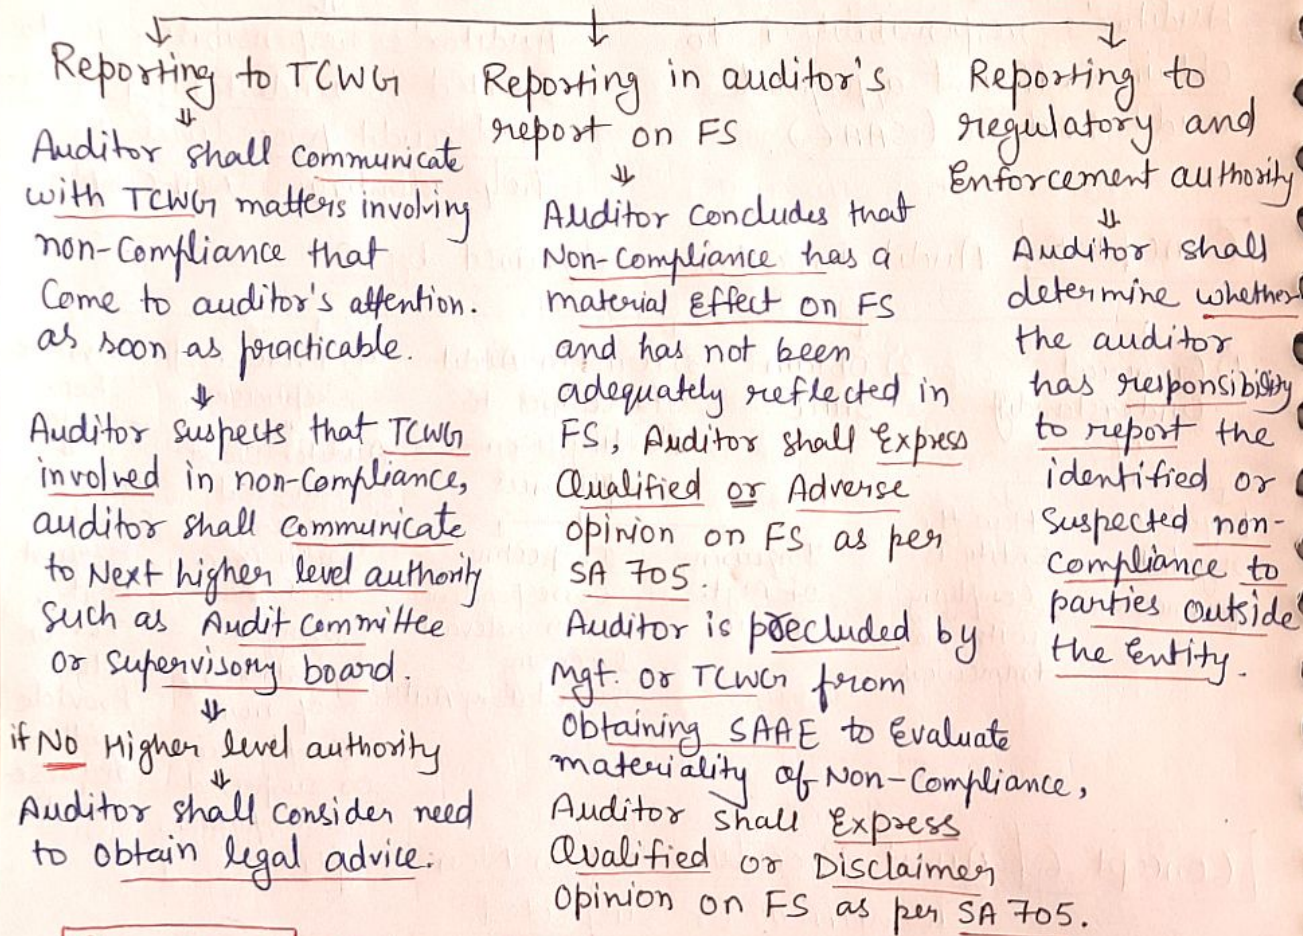 Reporting to TCWG
Auditor shall communicate
with TCWG matters involving
non-compliance that
Come to auditor's attention.
as soon as practicable.
Auditor suspects that TCWG
involved in non-compliance,
auditor shall communicate
to Next higher level authority
such as Audit committee
or supervisory board.
if No Higher level authority
Auditor shall consider need
to obtain legal advice.
Reporting in auditor's
report on FS
Auditor concludes that
Non-compliance has a
material Effect on FS
and has not been
adequately reflected in
FS, Auditor shall Express
Qualified or Adverse
opinion on FS as per
SA 705.
Auditor is precluded by
Mgt. or TCWG from
Obtaining SAAE to Evaluate
materiality of Non-Compliance,
Auditor shall Express
Qualified or Disclaimer
Opinion on FS as per SA 705.
Reporting to
regulatory and
Enforcement authority
Auditor shall
determine whether
the auditor
has responsibility
to report the
identified or
Suspected non-
Compliance to
parties outside
the Entity.